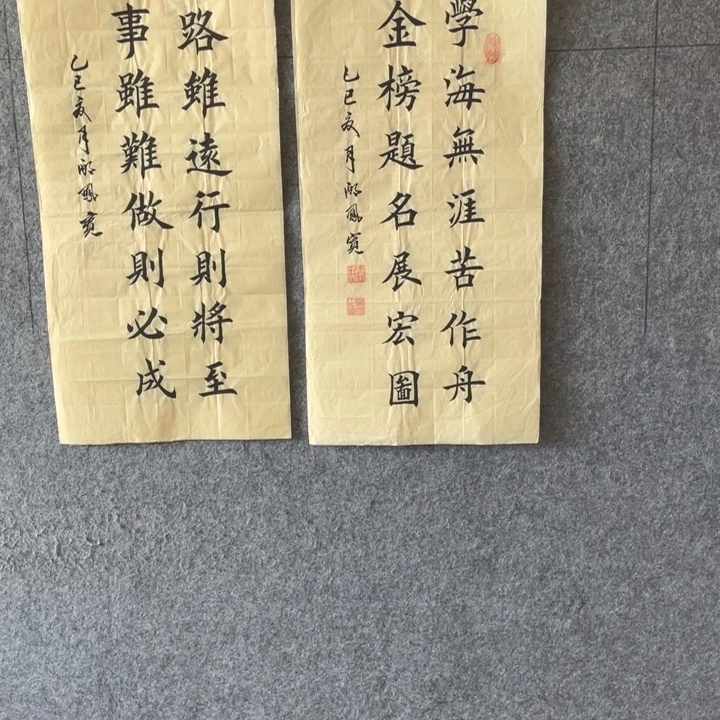 學海無涯苦作舟
金榜題名展宏圖
乙巳夏月
路雖遠行則將至
事雖難做則必成
乙巳夏月